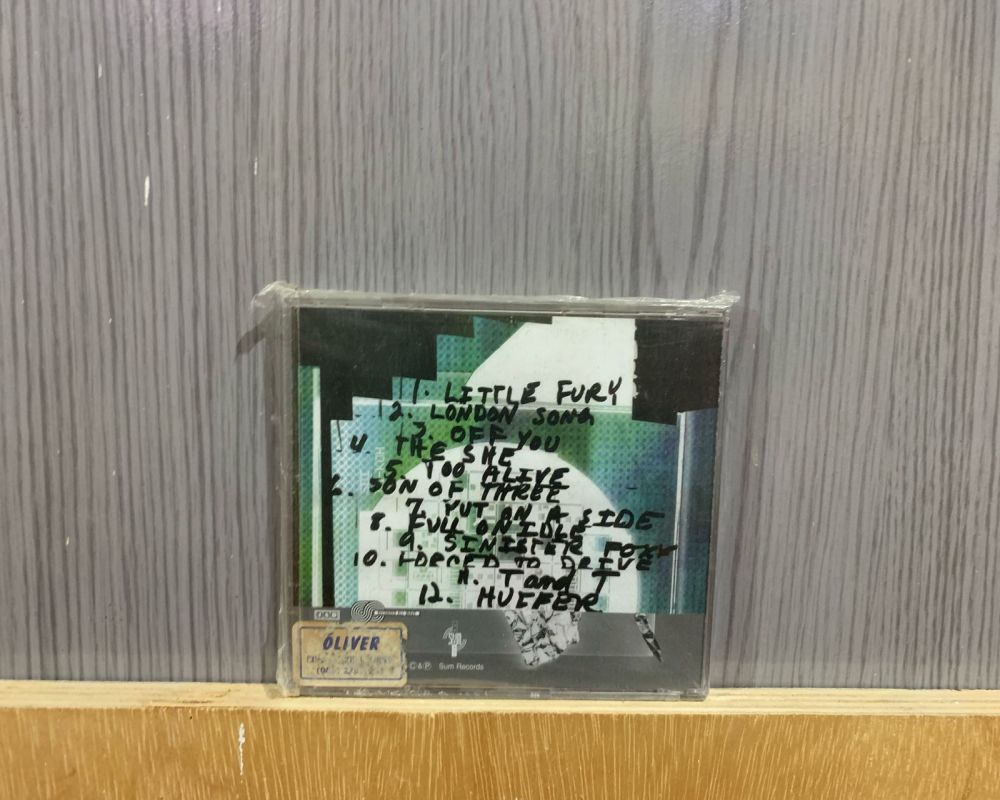 1. LITTLE FURY
2. LONDON SONG
3. OFF YOU
4. THE SHE
5. TOO ALIVE
6. SON OF THREE
7. PUT ON A SIDE
8. FULL ON IDLE
9. SINISTER FOXX
10. FORCED TO DRIVE
11. T and T
12. HUFFER
ÓLIVER
C & P Sum Records